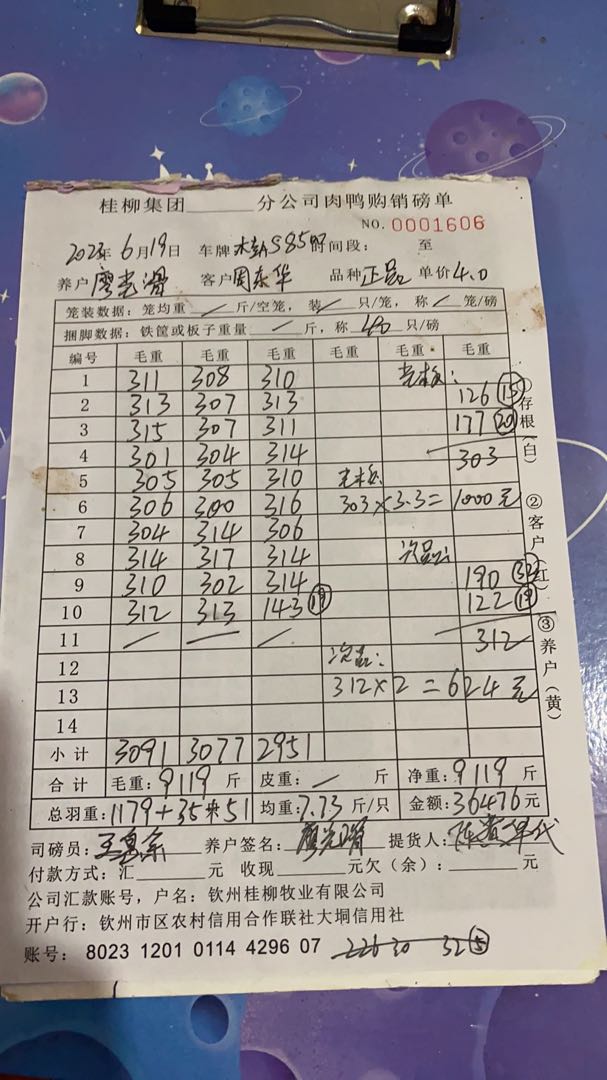 桂柳集团______分公司肉鸭购销磅单
NO. 0001606
2023年6月19日 车牌 S85 时间段： 至
养户 廖光滑 客户 周东华 品种 正品 单价 4.0
笼装数据：笼均重 / 斤/空笼，装 / 只/笼，称 / 笼/磅
捆脚数据：铁筐或板子重量 / 斤，称 40 只/磅
编号 毛重 毛重 毛重 毛重 毛重 毛重
1 311 308 310 光板：
2 313 307 313 126 ⑮
3 315 307 311 177 ⑳
4 301 304 314 303
5 305 305 310 光板
6 306 300 316 303×3.3=1000元
7 304 314 306
8 314 317 314 次品：
9 310 302 314 190
10 312 313 143 ⑲ 122 ⑲
11 / / / 312
12 次品：
13 312×2=624元
14
小计 3091 3077 2951
合计 毛重：9119 斤 皮重：/ 斤 净重：9119 斤
总羽重：1179+35+51 均重：7.73 斤/只 金额：36476 元
司磅员： 养户签名：廖光滑 提货人：
付款方式：汇______元 收现______元欠（余）：______元
公司汇款账号，户名：钦州桂柳牧业有限公司
开户行：钦州市区农村信用合作联社大垌信用社
账号：8023 1201 0114 4296 07
①存根（白）
②客户（红）
③养户（黄）